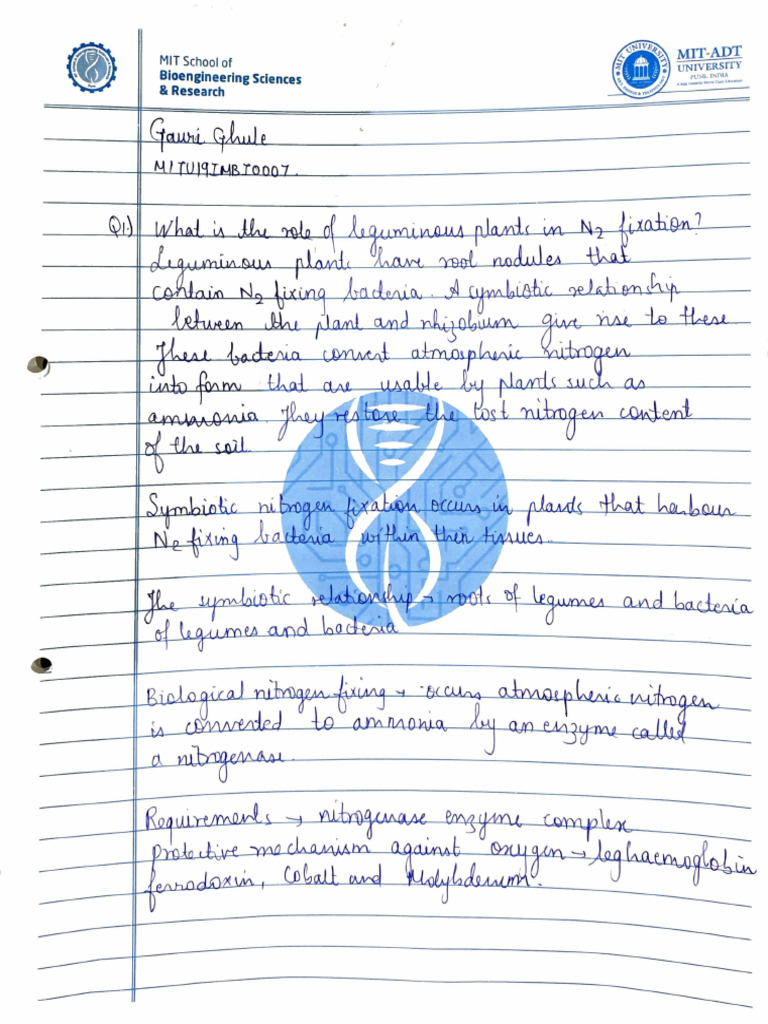 MIT School of
Bioengineering Sciences
& Research
MIT-ADT
UNIVERSITY
PUNE, INDIA
Gauri Ghule
MITU19IMBT0007.
Q1.) What is the role of leguminous plants in N2 fixation?
Leguminous plants have root nodules that
contain N2 fixing bacteria. A symbiotic relationship
between the plant and rhizobium give rise to these
These bacteria convert atmospheric nitrogen
into form that are usable by plants such as
ammonia. They restore the lost nitrogen content
of the soil.
Symbiotic nitrogen fixation occurs in plants that harbour
N2 fixing bacteria within their tissues.
The symbiotic relationship → roots of legumes and bacteria
of legumes and bacteria
Biological nitrogen fixing → occurs atmospheric nitrogen
is converted to ammonia by an enzyme called
a nitrogenase.
Requirements → nitrogenase enzyme complex
protective mechanism against oxygen → leghaemoglobin
ferrodoxin, Cobalt and Molybdenum.